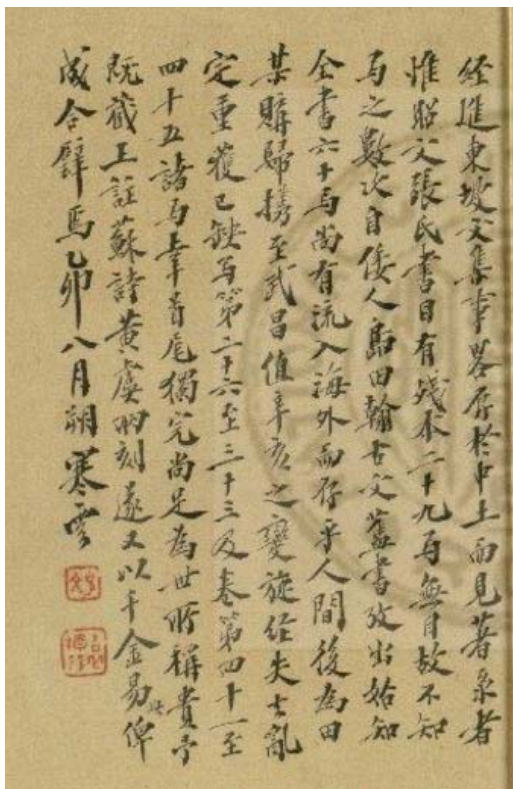 經進東坡文集事畧存於中土而見著录者
惟昭文張氏書目有殘本二十九弓無目故不知
弓之數次自倭人島田翰古文舊書攷出始知
全書六十弓尚有流入海外而存乎人間後為田
某購歸携至武昌值辛亥之變旋經失去亂
定重獲已缺弓第二十六至三十三及卷第四十一至
四十五諸弓幸首尾獨完尚足為世所稱貴予
既藏王註蘇詩黃虞兩刻遂又以千金易此俾
成合璧焉乙卯八月朔寒雲